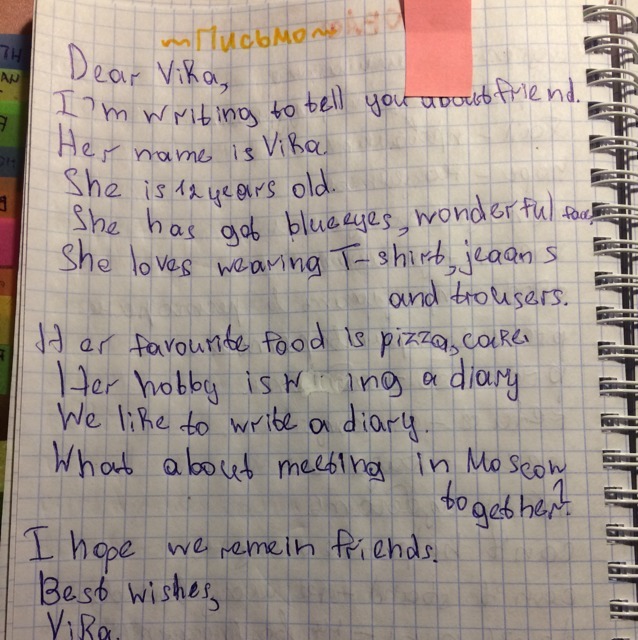 ~Письмо~
Dear Vika,
I'm writing to tell you about friend.
Her name is Vika
She is 12 years old.
She has got blue eyes, wonderful face,
She loves wearing T-shirt, jeaans
and trousers.
Her favourite food is pizza, cake.
Her hobby is a diary
We like to write a diary.
What about meeting in Moscow
together?
I hope we remein friends.
Best wishes,
Vika.